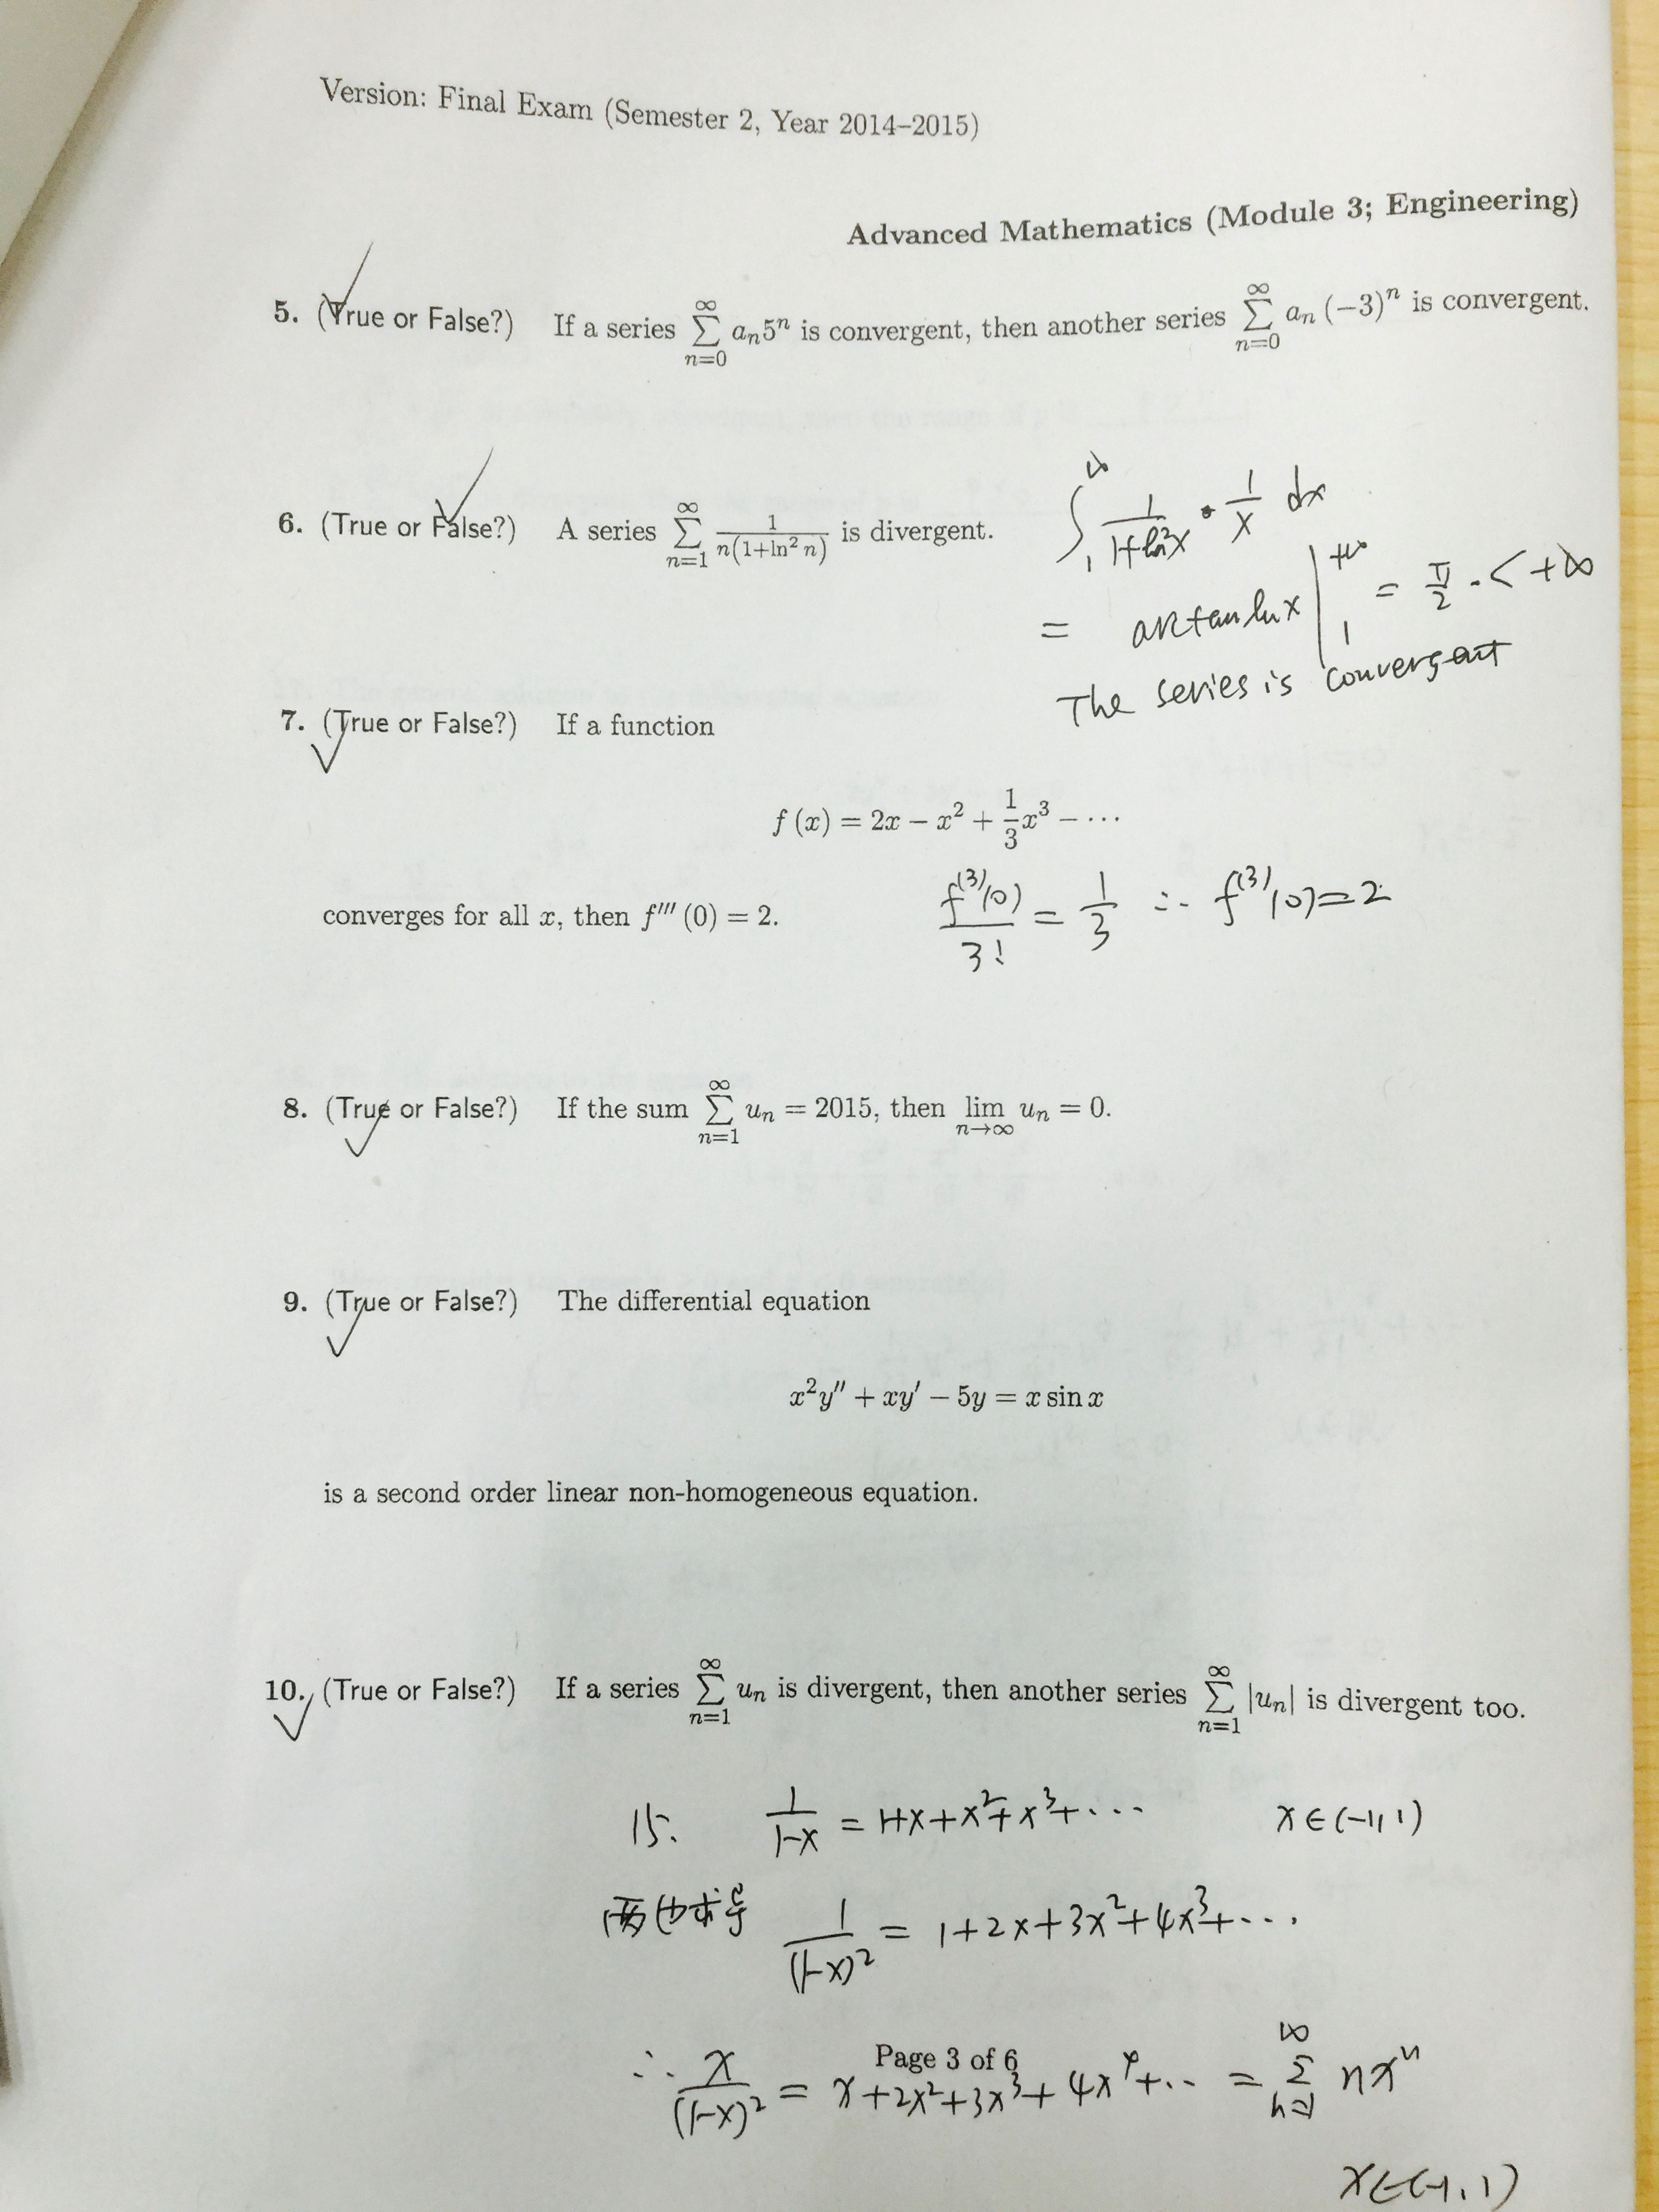 Version: Final Exam (Semester 2, Year 2014–2015)
Advanced Mathematics (Module 3; Engineering)
5. (True or False?) If a series ∑_{n=0}^{∞} a_n 5^n is convergent, then another series ∑_{n=0}^{∞} a_n (−3)^n is convergent.
6. (True or False?) A series ∑_{n=1}^{∞} 1/(n(1+ln² n)) is divergent.
∫_1^∞ 1/(1+ln²x) · 1/x dx
= arctan ln x |_1^{+∞} = π/2 . < +∞
The series is convergent
7. (True or False?) If a function
f (x) = 2x − x² + 1/3 x³ − ⋯
converges for all x, then f''' (0) = 2.
f^{(3)}(0)/3! = 1/3 ∴ f^{(3)}(0) = 2
8. (True or False?) If the sum ∑_{n=1}^{∞} u_n = 2015, then lim_{n→∞} u_n = 0.
9. (True or False?) The differential equation
x²y'' + xy' − 5y = x sin x
is a second order linear non-homogeneous equation.
10. (True or False?) If a series ∑_{n=1}^{∞} u_n is divergent, then another series ∑_{n=1}^{∞} |u_n| is divergent too.
15. 1/(1-x) = 1+x+x²+x³+⋯ x∈(-1,1)
两边求导 1/(1-x)² = 1+2x+3x²+4x³+⋯
Page 3 of 6
∴ x/(1-x)² = x+2x²+3x³+4x⁴+⋯ = ∑_{n=1}^{∞} nx^n
x∈(-1,1)